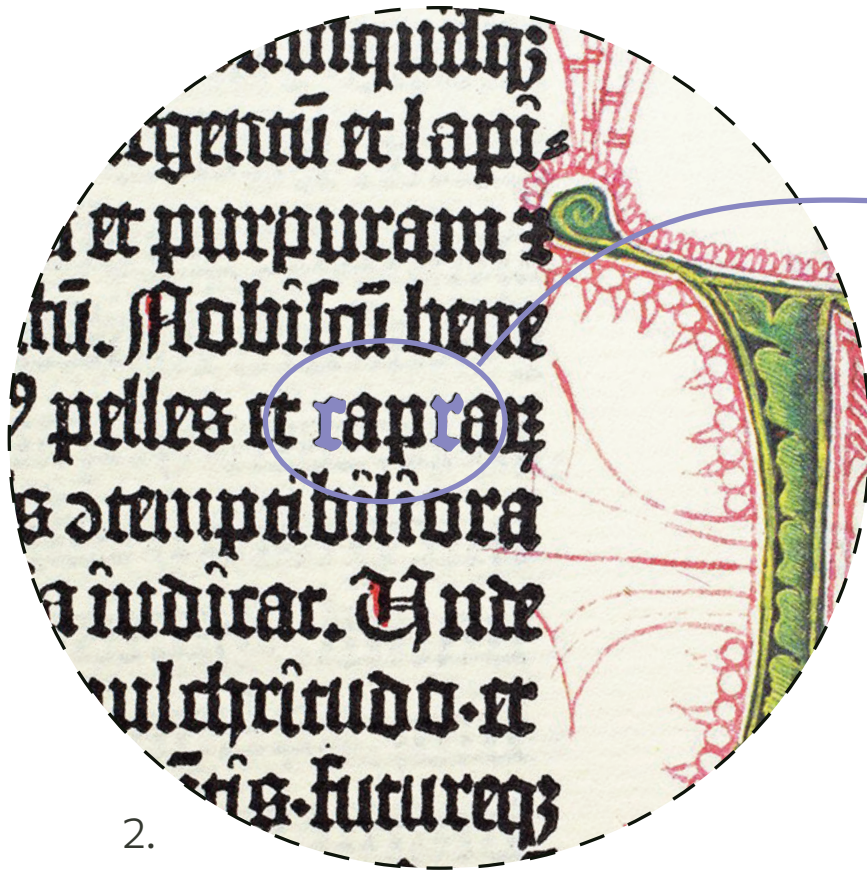 nuſquiſqꝫ
rgentū et lapi-
et purpuram ⁊
tū. Nobiſcū bene
ꝰ pelles et rapraꝝ
s ↄtemptibiliora
a iudicat. Unde
ulchritudo·et
ētis·futureqꝫ
2.